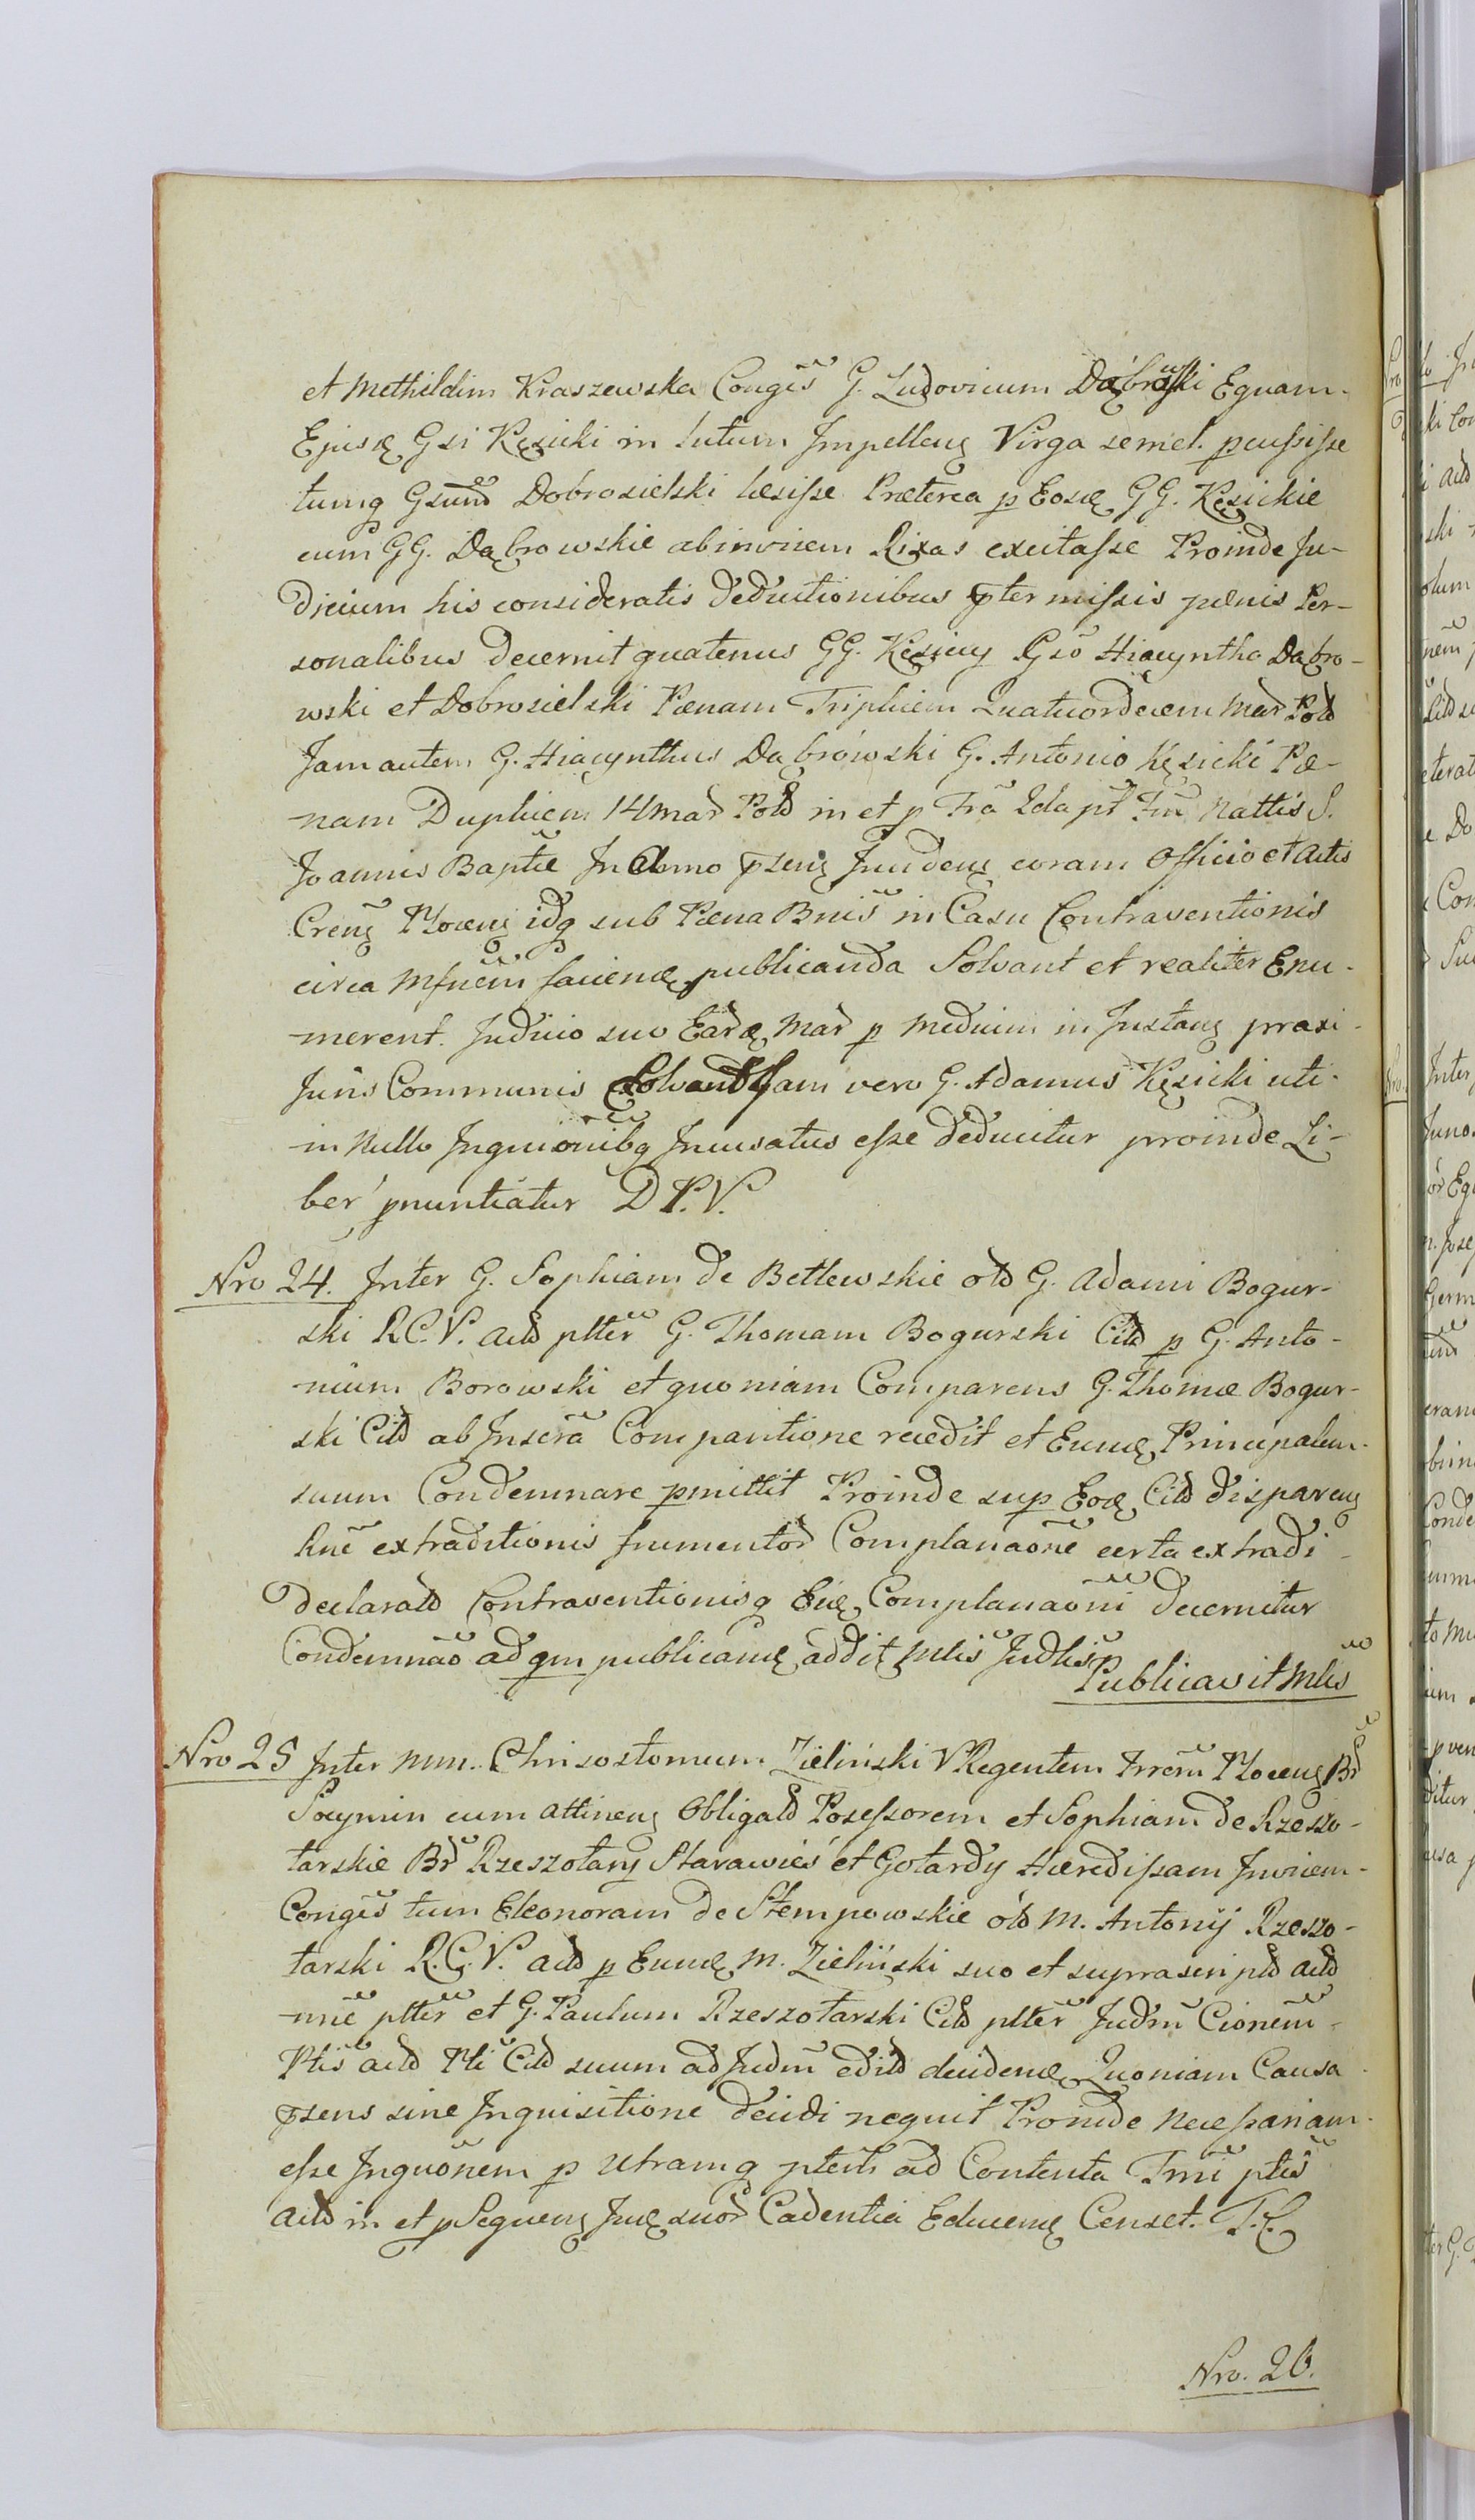 et Methildim Kraszewska Congēs G. Ludovicum Dąbrowski Equam
Ejusq Gsi Kęsicki in lutum Impelleng Virga semel pcussisse
tumq Gsum Dobrosielski læsisse Præterea p Eosq GG. Kęsickie
cum GG. Dąbrowskie abinvicem Rixas excitasse Proinde Ju-
dicium his consideratis deductionibus ptermissis pœnis Per-
sonalibus decernit quatenus GG. Kęsiccy Gso Hiacyntho Dąbro-
wski et Dobrosielski Pœnam Triplicem Quatuordecem Mar Pold
Jam autem G. Hiacynthus Dąbrowski G. Antonio Kęsicki Pœ-
nam Duplicem 14 mar Pold in et p Fra 2da pt Fm Nattis S.
Joannis Baptæ In Anno pseng Incideng coram Officio et Actis
Creng Ploceng idq sub Pœna Bnis in Casu Contraventionis
circa Mfnem faciend publicanda Solvant et realiter Enu-
merent. Judicio suo Eard Mar p medium in Instang praxi
Juris Communis Solvant Jam vero G. Adamus Kęsicki uti
in Nullo Inquionibq Incusatus esse deducitur proinde Li-
ber pnuntiatur D P. V.
Nro 24. Inter G. Sophiam de Betlewskie old G. Adami Bogur-
ski R C. V. actd pltter G. Thomam Bogurski Citd p G. Anto-
nium Borowski et quoniam Comparens G. Thomæ Bogur-
ski Citd ab Insera Comparitione recedit et Eumd Principalem
suum Condemnare pmittit Proinde sup Eod Citd dispareng
Rne extraditionis frumentor Complanaone certa extradi
declarald Contraventionisq Eid Complanaoni decernitur
Condemnao ad qm publicand addit Mlis Judlis
Publicavit Mlis
Nro 25 Inter MM. Chrisostomum Zieliński VRegentem Trrem Ploceng Br
Socymin cum attineng Obligald Posessorem et Sophiam de Rzeszo-
tarskie Br Rzeszotary Starawieś et Gotardy Hæredissam Invicem
Congēs tum Eleonoram de Stempowskie old M. Antonij Rzeszo-
tarski R. C. V. actd p Eumd M. Zieliński suo et suprascripld actd
nne pltter et G. Paulum Rzeszotarski Citd pltter Judm Cionem
Ptis actd Pti Citd suum ad Judm editd decidend Quoniam Causa
psens sine Inquisitione decidi nequit Proinde Necessariam
esse Inquonem p Utramq ptem ad Contenta Tmi ptis
actd in et p Sequeng Jud suor Cadentia Educend Censet. T. C
Nro. 26.